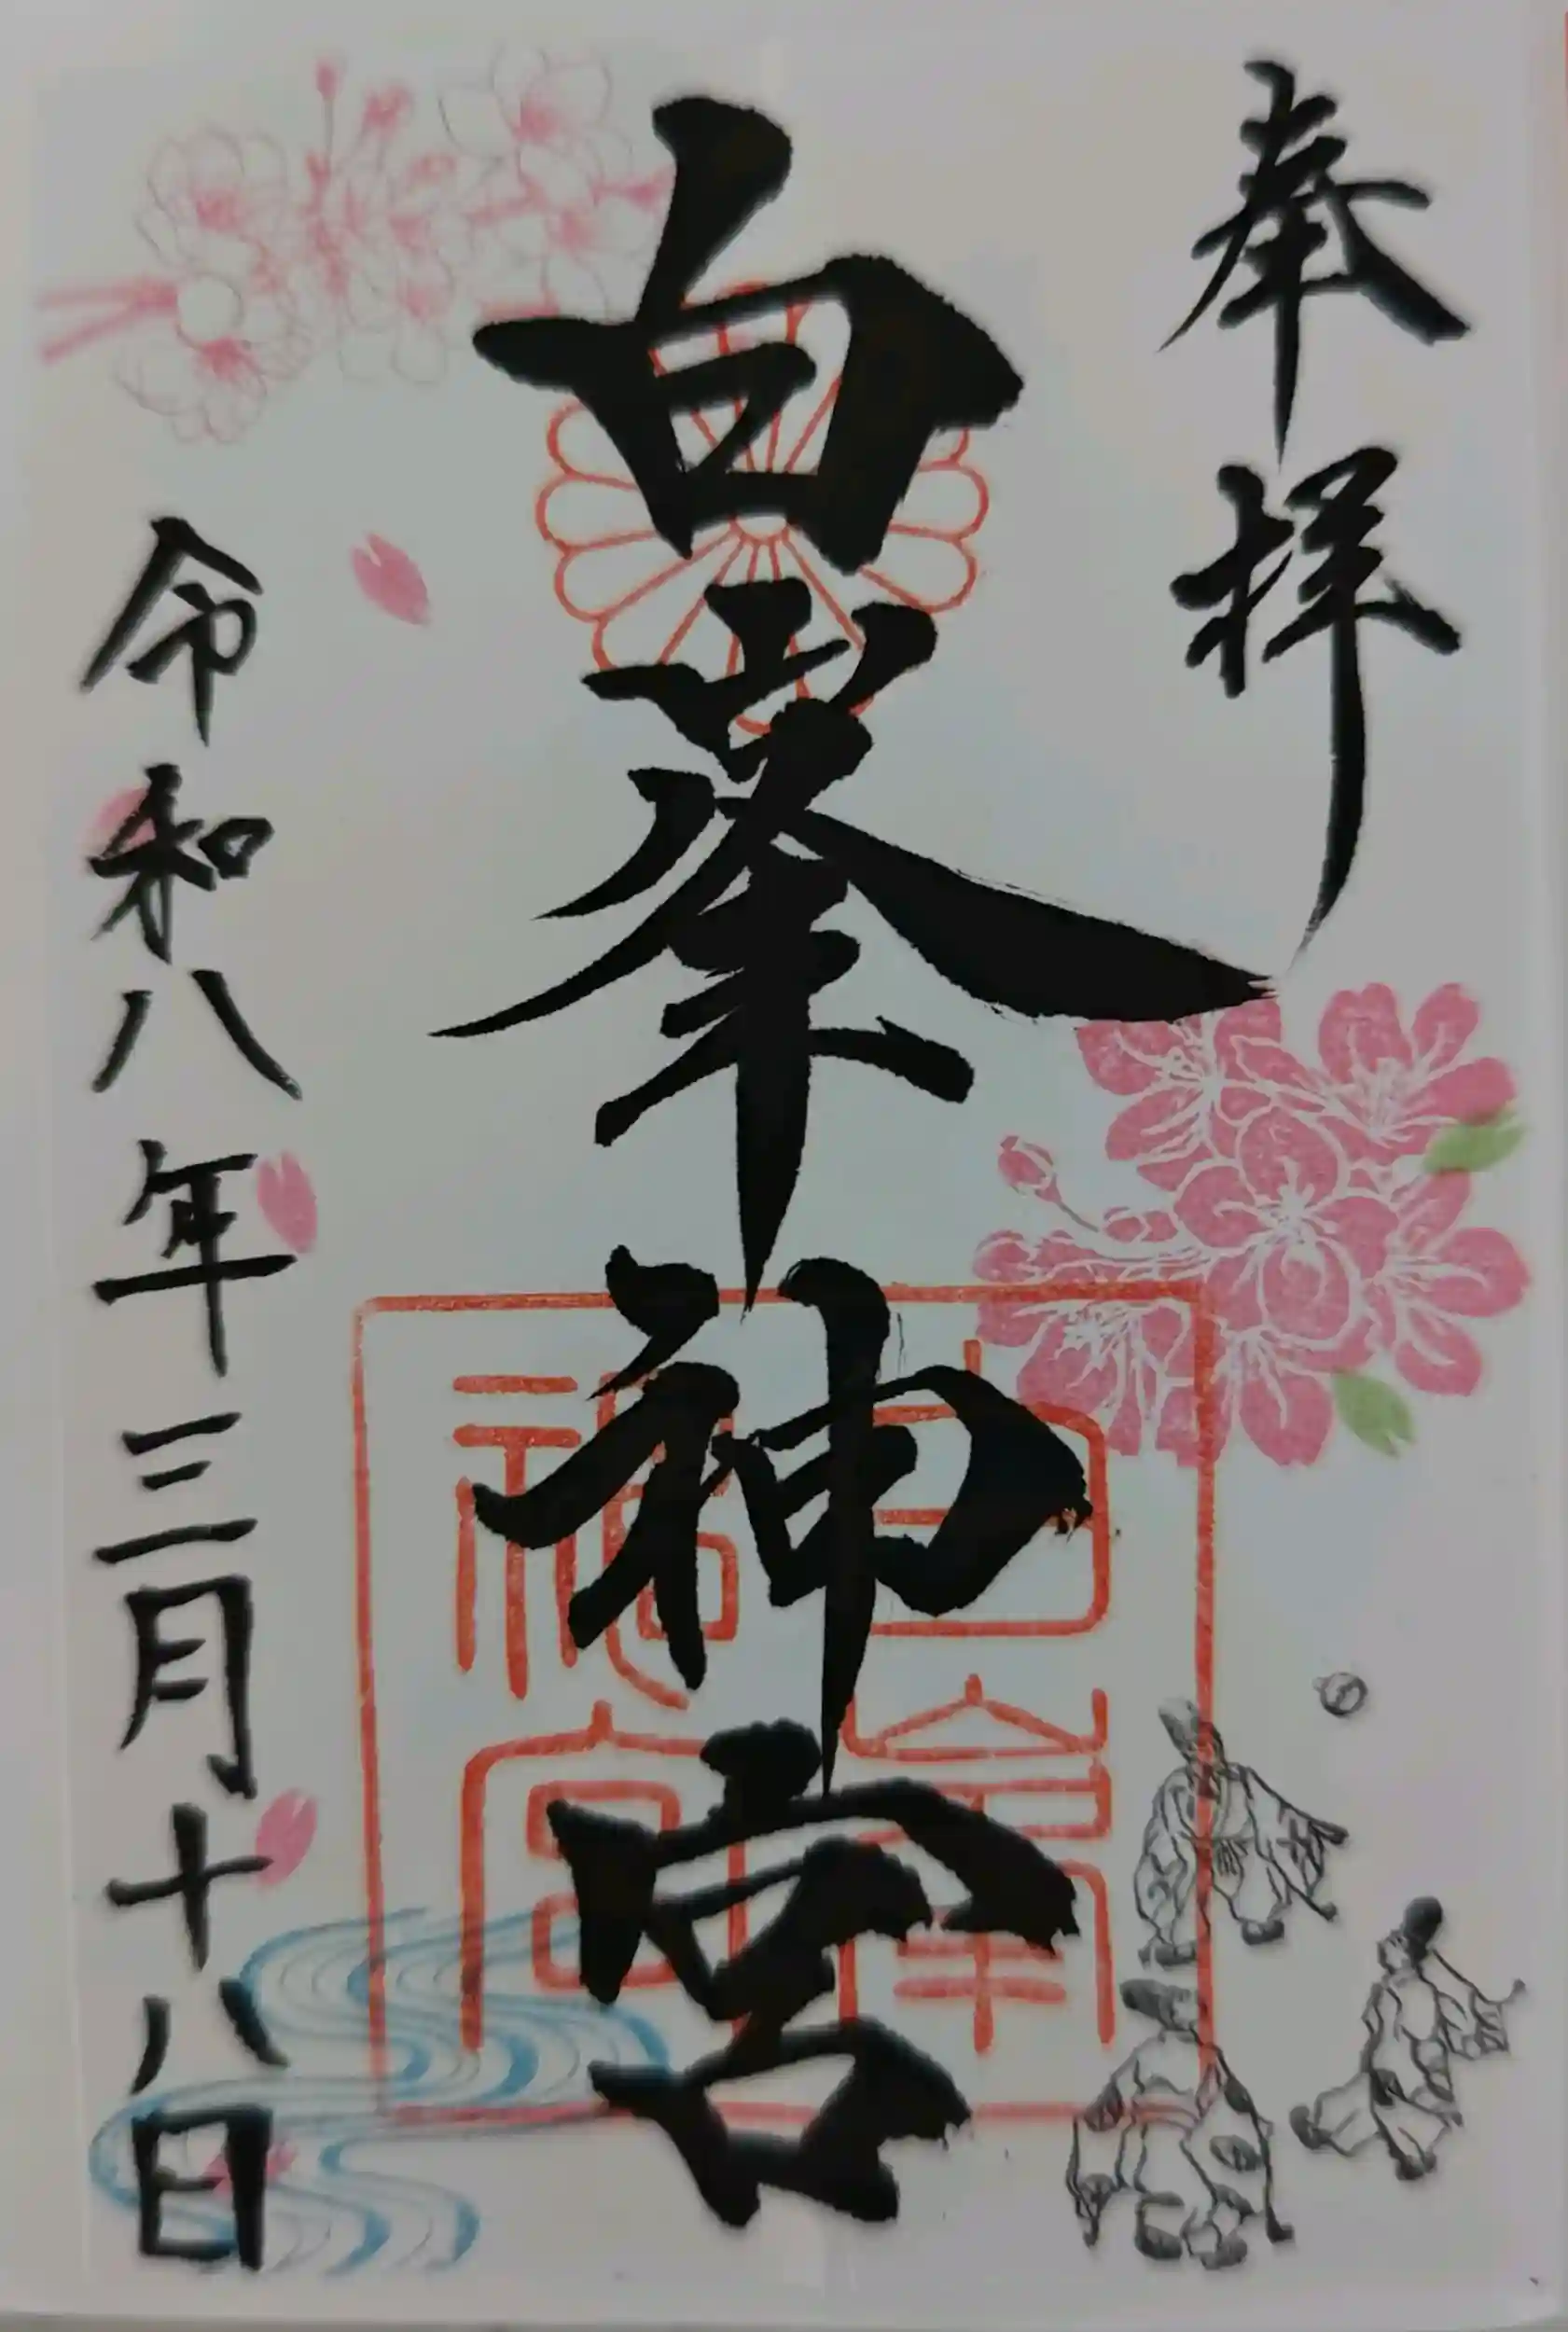 奉拝
白峯神宮
令和八年三月十八日
白峯神宮